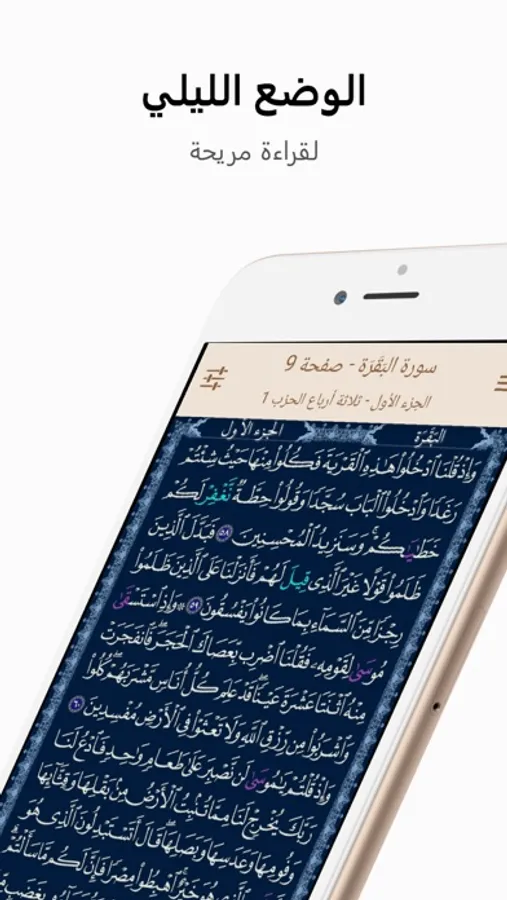 الوضع الليلي
لقراءة مريحة
سورة البَقَرَة - صفحة 9
الجزء الأول - ثلاثة أرباع الحزب 1
البَّقَرَة
الجزء الأول
وَإِذْ قُلْنَا ٱدْخُلُوا۟ هَٰذِهِ ٱلْقَرْيَةَ فَكُلُوا۟ مِنْهَا حَيْثُ شِئْتُمْ
رَغَدًا وَٱدْخُلُوا۟ ٱلْبَابَ سُجَّدًا وَقُولُوا۟ حِطَّةٌ نَّغْفِرْ لَكُمْ
خَطَٰيَٰكُمْ ۚ وَسَنَزِيدُ ٱلْمُحْسِنِينَ ٥٨ فَبَدَّلَ ٱلَّذِينَ
ظَلَمُوا۟ قَوْلًا غَيْرَ ٱلَّذِى قِيلَ لَهُمْ فَأَنزَلْنَا عَلَى ٱلَّذِينَ ظَلَمُوا۟
رِجْزًا مِّنَ ٱلسَّمَآءِ بِمَا كَانُوا۟ يَفْسُقُونَ ٥٩ ۞ وَإِذِ ٱسْتَسْقَىٰ
مُوسَىٰ لِقَوْمِهِۦ فَقُلْنَا ٱضْرِب بِّعَصَاكَ ٱلْحَجَرَ ۖ فَٱنفَجَرَتْ
مِنْهُ ٱثْنَتَا عَشْرَةَ عَيْنًا ۖ قَدْ عَلِمَ كُلُّ أُنَاسٍ مَّشْرَبَهُمْ ۖ كُلُوا۟
وَٱشْرَبُوا۟ مِن رِّزْقِ ٱللَّهِ وَلَا تَعْثَوْا۟ فِى ٱلْأَرْضِ مُفْسِدِينَ ٦٠
وَإِذْ قُلْتُمْ يَٰمُوسَىٰ لَن نَّصْبِرَ عَلَىٰ طَعَامٍ وَٰحِدٍ فَٱدْعُ لَنَا
رَبَّكَ يُخْرِجْ لَنَا مِمَّا تُنۢبِتُ ٱلْأَرْضُ مِنۢ بَقْلِهَا وَقِثَّآئِهَا
وَفُومِهَا وَعَدَسِهَا وَبَصَلِهَا ۖ قَالَ أَتَسْتَبْدِلُونَ ٱلَّذِى هُوَ
خَيْرٌ ۚ ٱهْبِطُوا۟ مِصْرًا فَإِنَّ لَكُم مَّا سَأَلْتُمْ ۗ